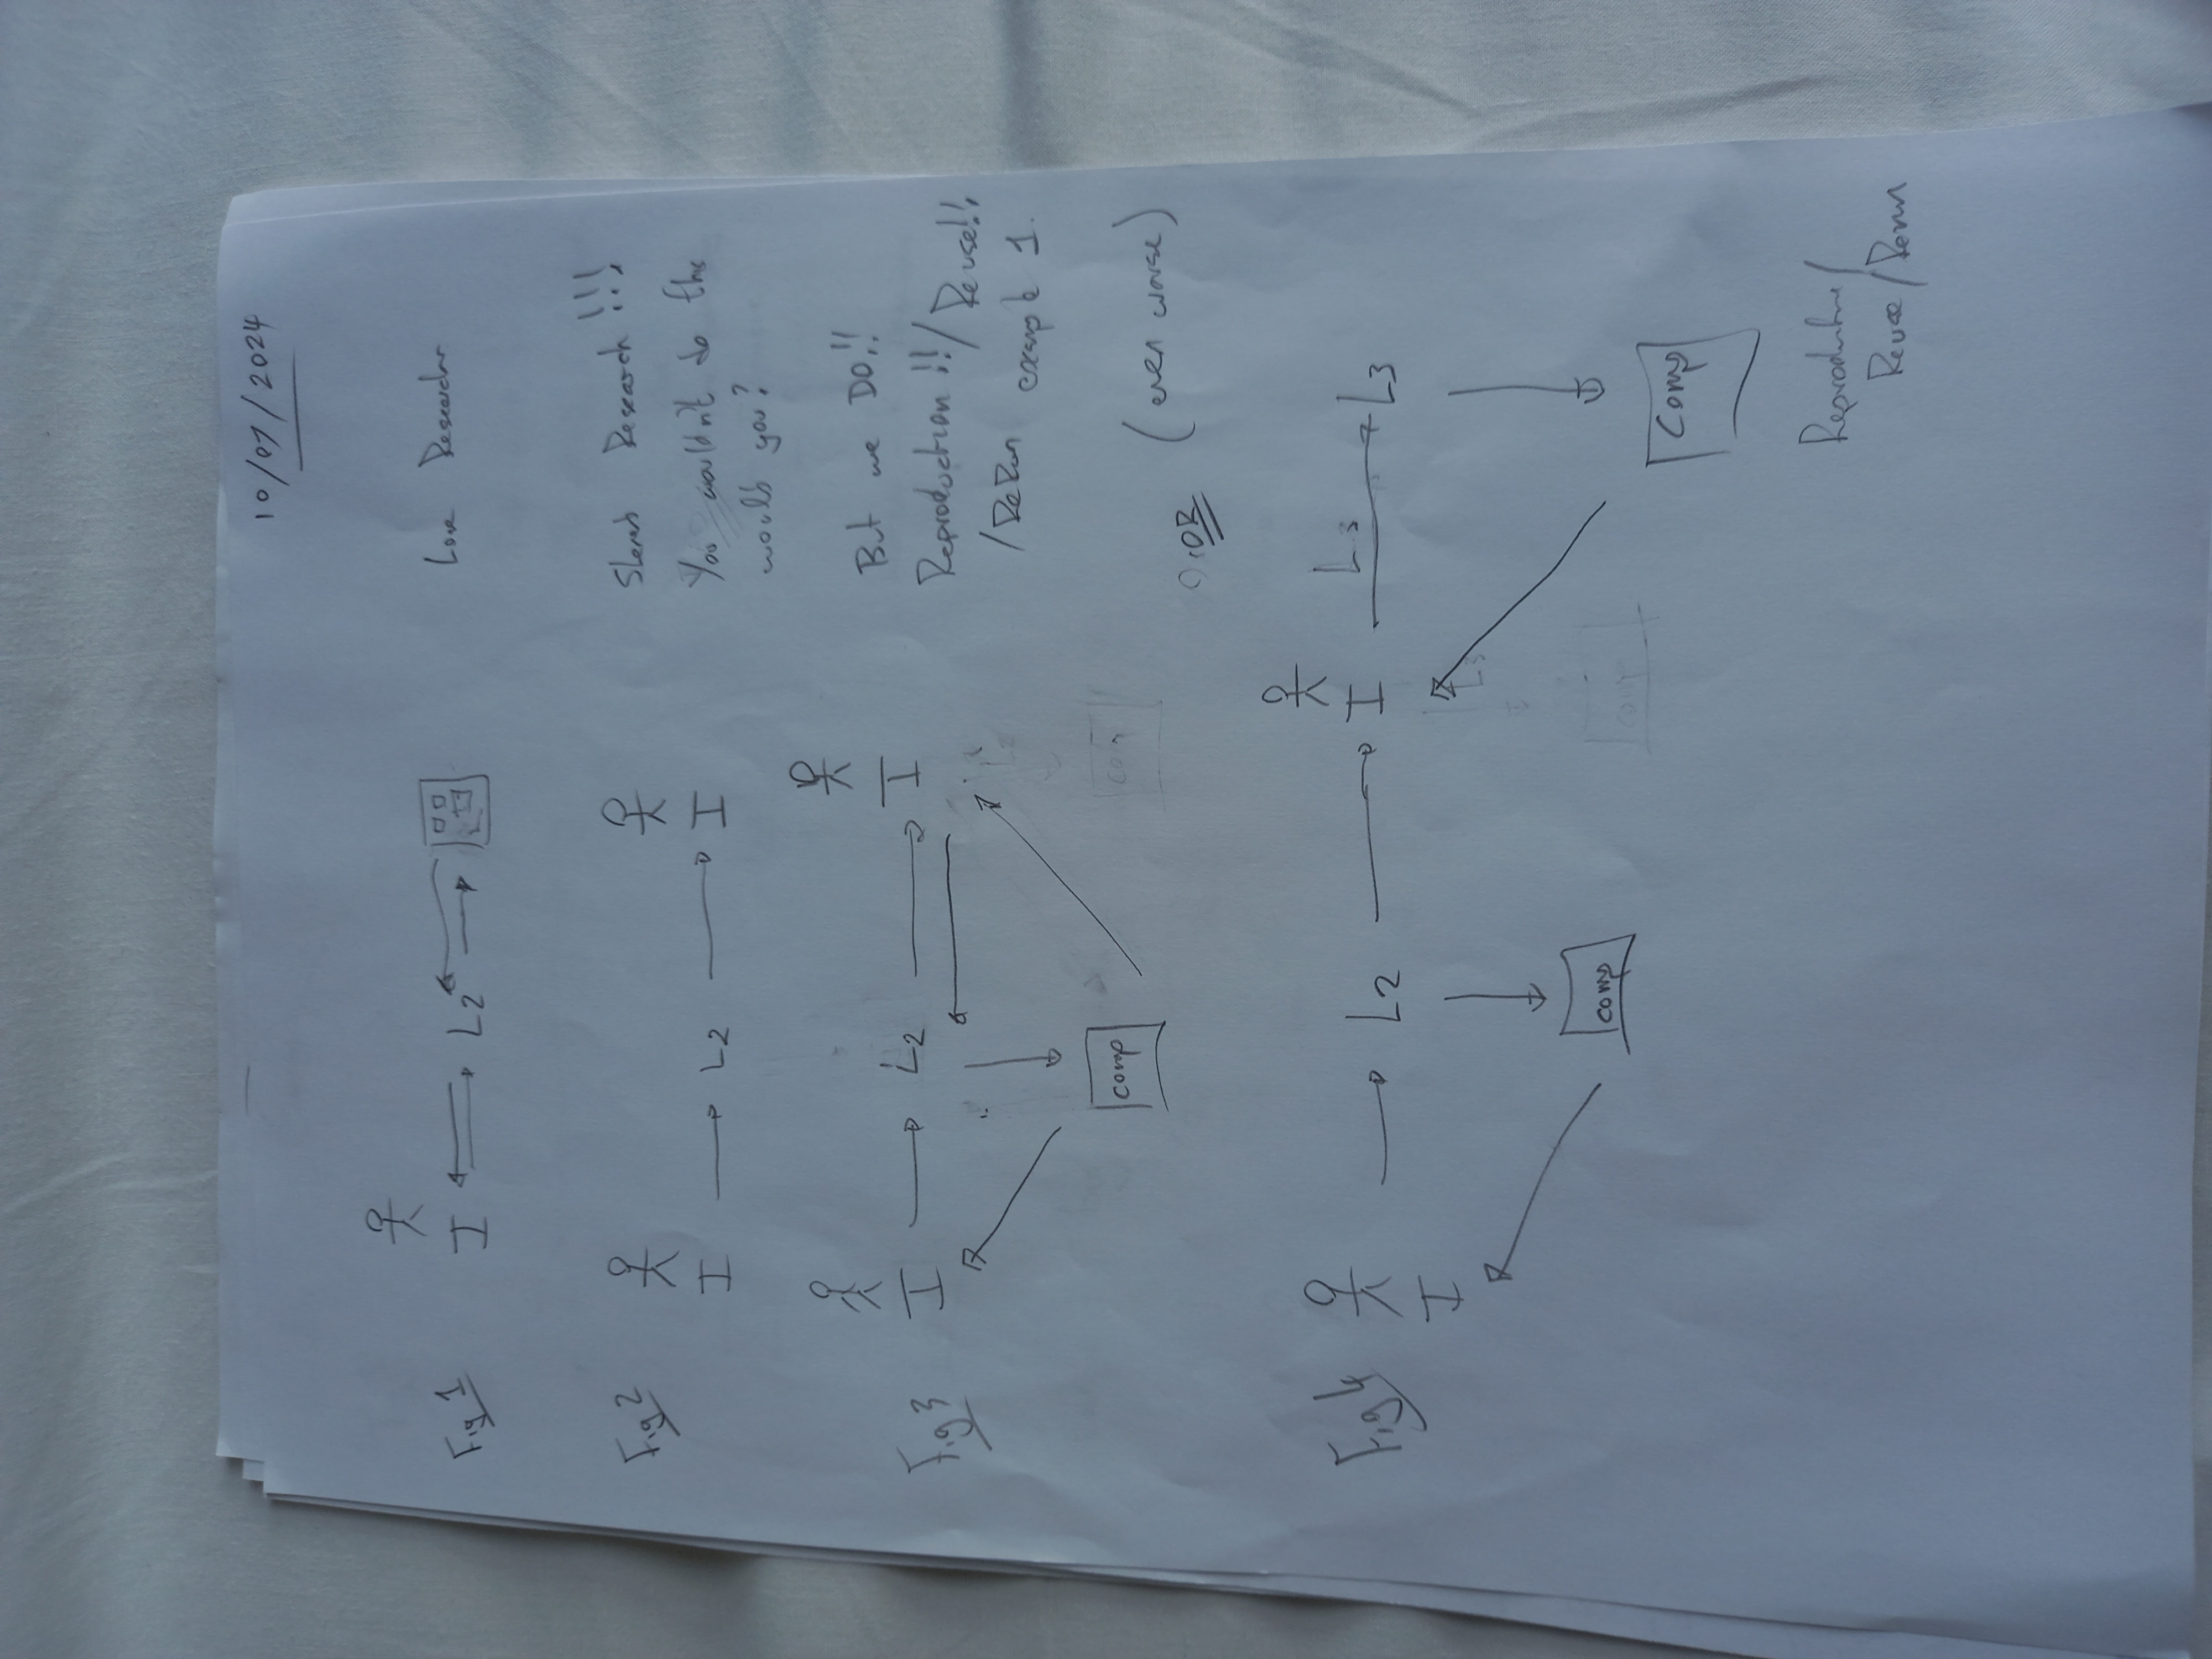 10/07/2024
Fig 1
I L2
Lone Researcher
Fig 2
I L2 I
Shared Research!!!
You wouldn't do this
would you?
Fig 3
I L2 I
But we DO!!
Reproduction!!/Reuse!!
/ReRun example 1.
comp
com
OR (even worse)
Fig 4
I L2 I L3 L3
L3
comp
comp
Comp
Reproduction/
Reuse/Rerun